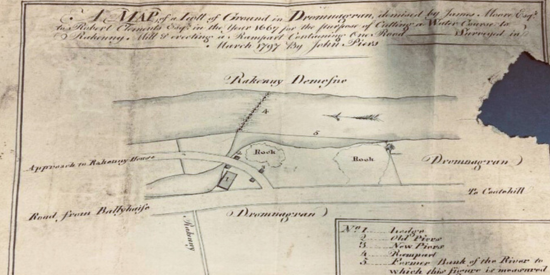 A MAP of a Small of Ground in Dromnagran, demised by James Moore Esqr.
to Robert Clements Esqr. in the Year 1667 for the purpose of Cutting a Water Course to
Rakenny Mill & erecting a Rampart Containing One Rood Surveyed in
March 1797 By John Piers
Rakenny Demesne
4
5
Rock
Rock
Approach to Rakenny House
Dromnagran
1
To Cootehill
Road from Ballyhaise
Dromnagran
Rakenny
No. 1 Lodge
2 Old Piers
3 New Piers
4 Rampart
5 Former Bank of the River to
which this figure is measured